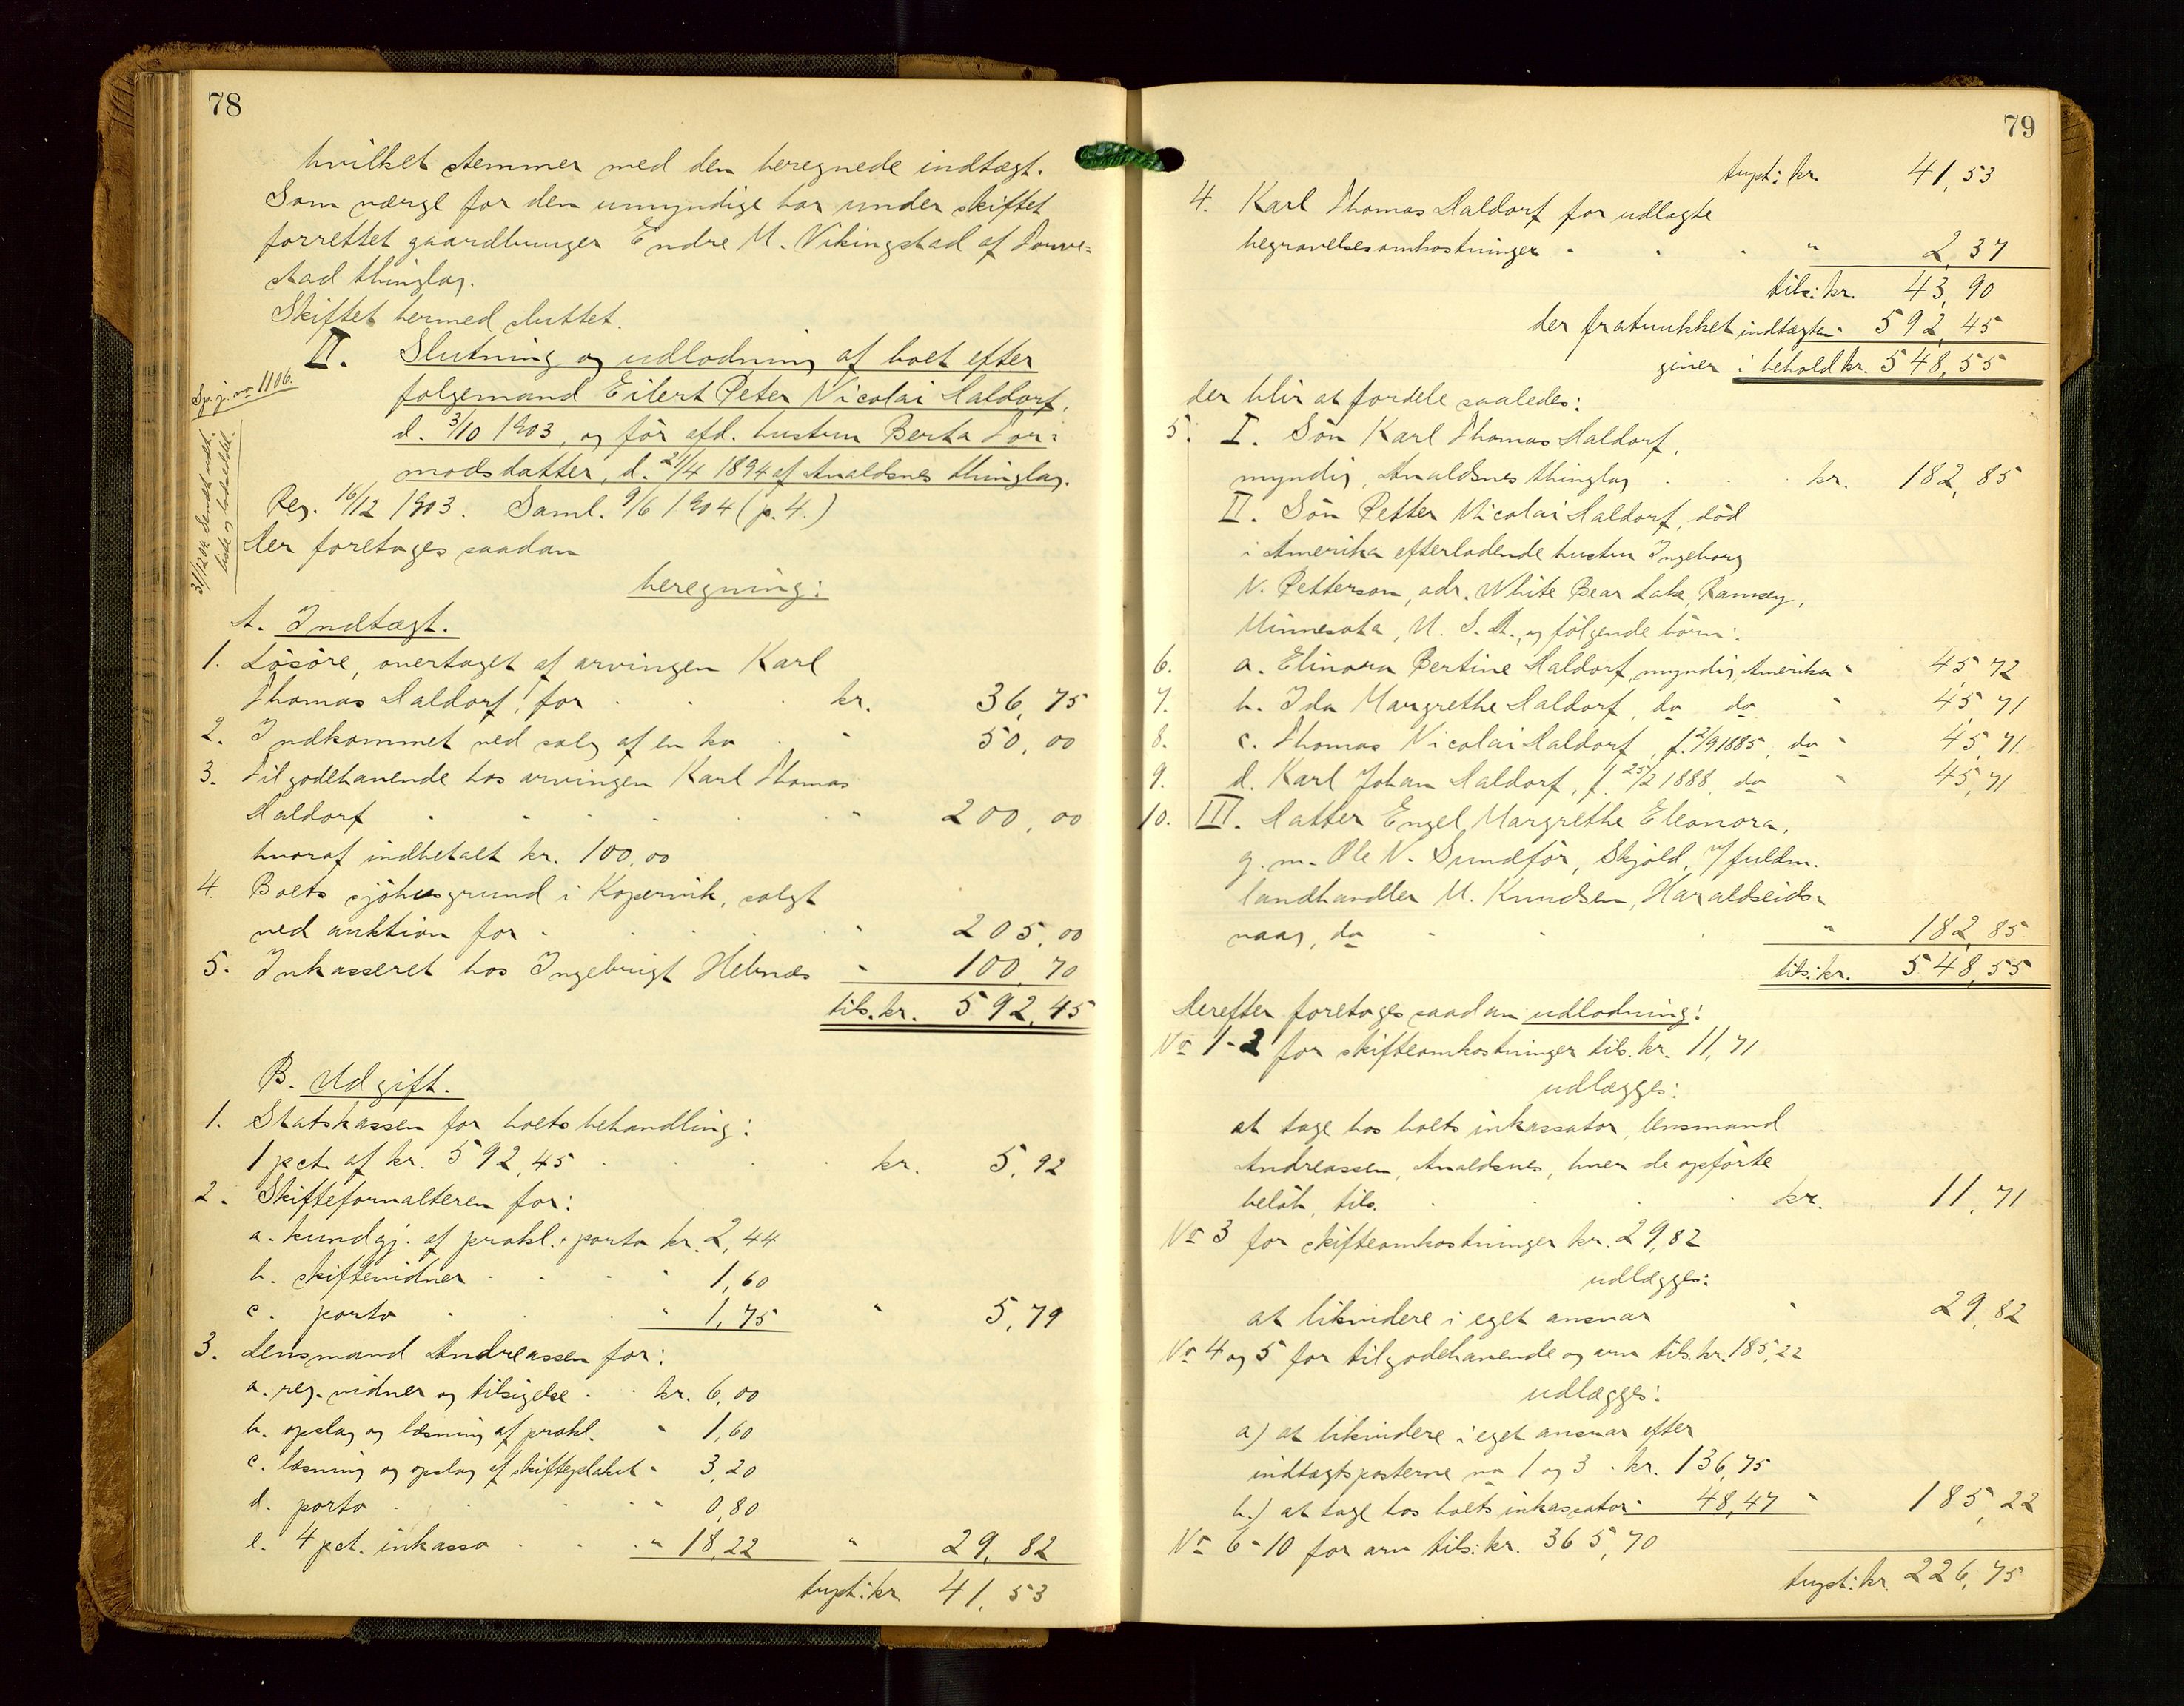 78
hvilket stemmer med den beregnede indtægt.
Som værge for den umyndige har under skiftet
forrettet gaardbruger Endre M. Vikingstad af Torve-
stad thinglag.
Skiftet hermed sluttet.
II. Slutning og udlodning af boet efter
følgemand Eilert Peter Nicolai Daldorf,
d. 3/10 1903, og før afd. hustru Berta Tor-
modsdatter, d. 21/4 1894 af Avaldsnes thinglag.
Sp. j. no 1106.
31/12 04 Sendt udsk.
liste og lodseddel.
Reg. 16/12 1903. Saml. 9/6 1904 (p. 4.)
Der foretoges saadan
beregning:
A. Indtægt.
1. Løsøre, overtaget af arvingen Karl
Thomas Daldorf, for kr. 36,75
2. Indkommet ved salg af en ko " 50,00
3. Tilgodehavende hos arvingen Karl Thomas
Daldorf " 200,00
hvoraf indbetalt kr. 100,00
4. Boets sjøhusgrund i Kopervik, solgt
ved auktion for " 205,00
5. Inkasseret hos Ingebrigt Helnæs " 100,70
tils. kr. 592,45
B. Udgift.
1. Statskassen for boets behandling:
1 pct. af kr. 592,45 kr. 5,92
2. Skifteforvalteren for:
a. kundgj. af prokl. + porto kr. 2,44
b. skiftevidner " 1,60
c. porto " 1,75 " 5,79
3. Lensmand Andreassen for:
a. reg. vidner og tilsigelse kr. 6,00
b. opslag og læsning af prokl. " 1,60
c. læsning og opslag af skifteplakat " 3,20
d. porto " 0,80
e. 4 pct. inkasso " 18,22 " 29,82
tvpt: kr. 41,53
79
tvpt: kr. 41,53
4. Karl Thomas Daldorf for udlagte
begravelsesomkostninger " 2,37
tils: kr. 43,90
der fratrukket indtægten " 592,45
giver i behold kr. 548,55
der blir at fordele saaledes:
5. I. Søn Karl Thomas Daldorf,
myndig, Avaldsnes thinglag kr. 182,85
II. Søn Petter Nicolai Daldorf, død
i Amerika efterladende hustru Ingeborg
N. Petterson, adr. White Bear Lake, Ramsey,
Minnesota, U. S. A., og følgende børn:
6. a. Elinora Bertine Daldorf, myndig, Amerika " 45,72
7. b. Ida Margrethe Daldorf, do do " 45,71
8. c. Thomas Nicolai Daldorf, f. 2/9 1885, do " 45,71
9. d. Karl Johan Daldorf, f. 25/2 1888, do " 45,71
10. III. Datter Engel Margrethe Eleonora,
g. m. Ole N. Sundfør, Skjold, v/ fuldm.
landhandler M. Knudsen, Haraldseids-
vaag, do " 182,85
tils: kr. 548,55
Derefter foretoges saadan udlodning:
No 1-2 for skifteomkostninger tils. kr. 11,71
udlægges:
at tage hos boets inkassator, lensmand
Andreassen, Avaldsnes, hver de opførte
beløb, tils. kr. 11,71
No 3 for skifteomkostninger kr. 29,82
udlægges:
at likvidere i eget ansvar " 29,82
No 4 og 5 for tilgodehavende og arv tils. kr. 185,22
udlægges:
a) at likvidere i eget ansvar efter
indtægtsposterne no 1 og 3 kr. 136,75
b.) at tage hos boets inkassator " 48,47 " 185,22
No 6-10 for arv tils: kr. 365,70
tvpt: kr. 226,75